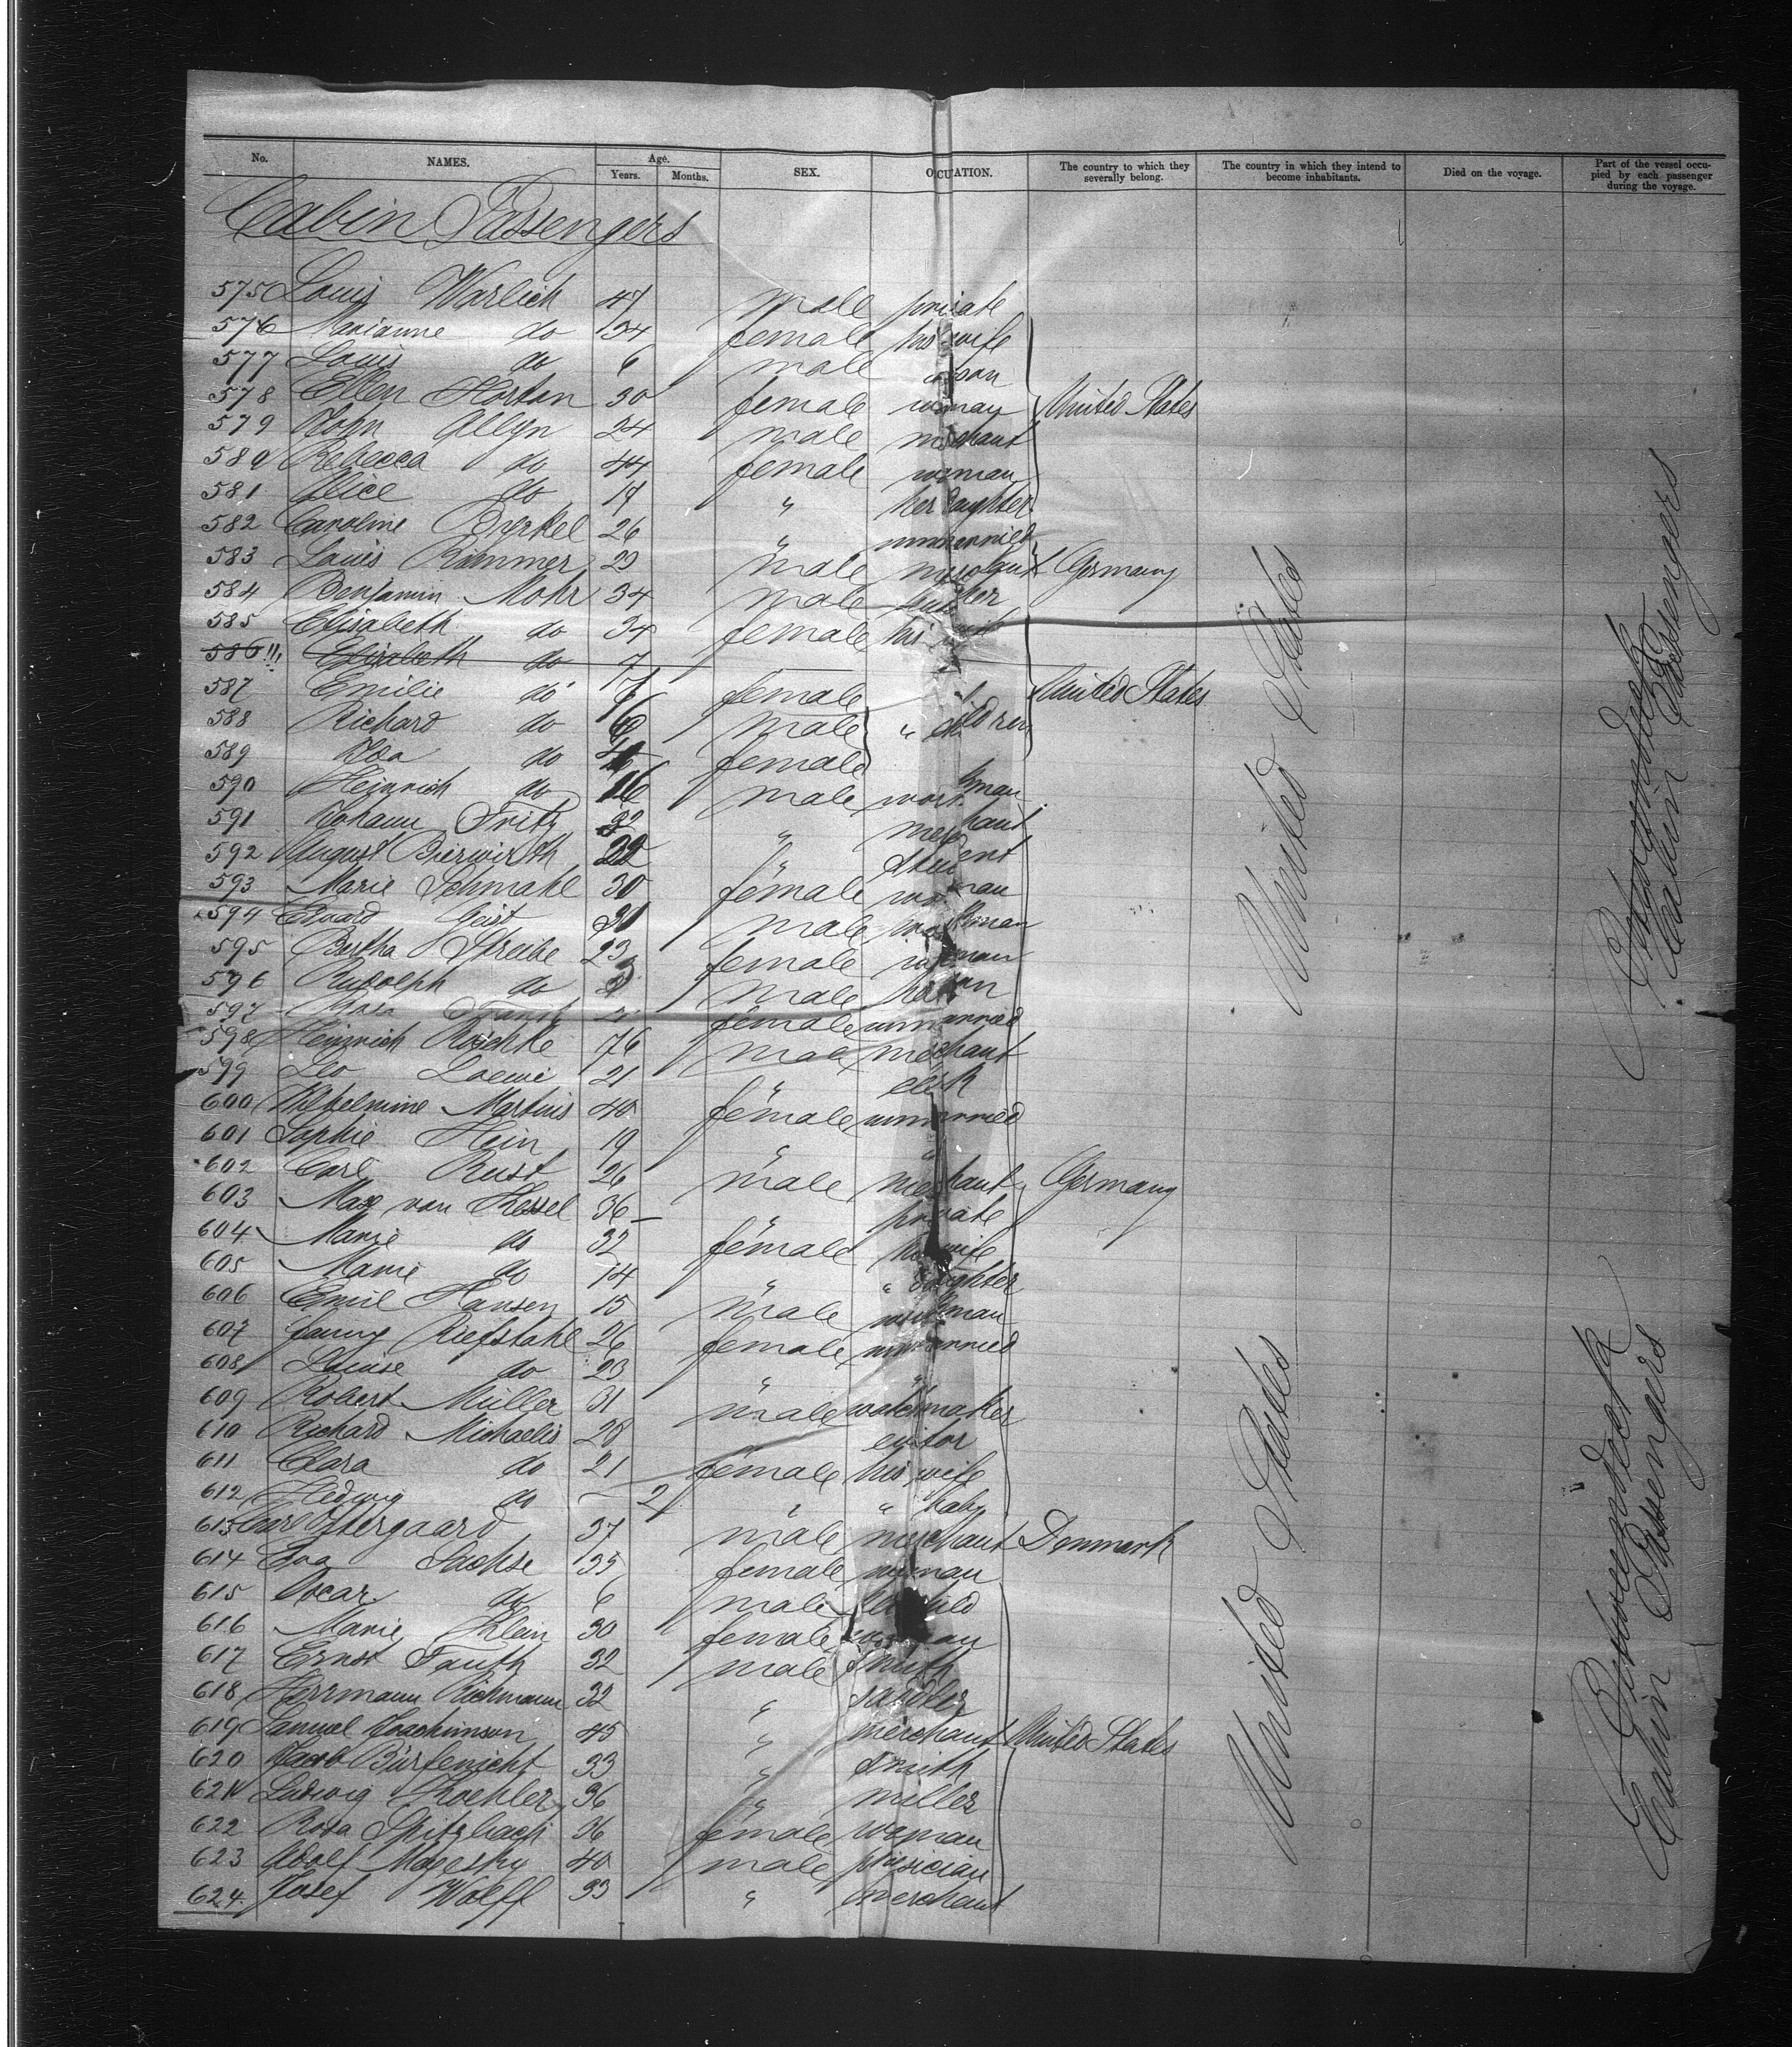 No. NAMES. Age. Years. Months. SEX. OCCUATION. The country to which they severally belong. The country in which they intend to become inhabitants. Died on the voyage. Part of the vessel occupied by each passenger during the voyage.
Cabin Passengers
575 Louis Warlich 47 male private
576 Marianne do 34 female his wife
577 Louis do 6 male son
578 Ellen Horton 30 female woman United States
579 John Allyn 24 male merchant
580 Rebecca do 44 female woman
581 Alice do 19 " her daughter
582 Caroline 26 " unmarried
583 Louis Rammer 29 male merchant Germany
584 Benjamin Mohr 34 male
585 Elisabeth do 34 female his wife
586 Elisabeth do 7
587 Emilie do female United States
588 Richard do male " children
589 Ida do female
590 Heinrich do 16 male workman
591 Johann Fritz 32 " merchant
592 August Bierwirth 22 " student
593 Marie Schmahl 30 female woman
594 Eduard Geist 31 male workman
595 Bertha Streibe 23 female woman
596 Rudolph do 3 male her son
597 female unmarried
598 Heinrich Roschke 76 male merchant
599 Leo Loewi 21 " clerk
600 Wilhelmine Martins 40 female unmarried
601 Sophie Hein 19 " "
602 Carl Rust 26 male merchant Germany
603 Max van Hessel 36 " private
604 Marie do 32 female his wife
605 Marie do 14 " " daughter
606 Emil Hansen 15 male workman
607 Fanny Riefstahl 26 female unmarried
608 Louise do 23 " "
609 Robert Müller 31 male watchmaker
610 Richard Michaelis 28
611 Clara do 21 female his wife
612 Hedwig do 2 " " baby
613 Carl Ostergaard 37 male merchant Denmark
614 Eva Sachse 35 female woman
615 Oscar do 6 male child
616 Marie Klein 30 female woman
617 Ernst Fauth 32 male smith
618 Herrmann Richmann 32 " saddler
619 Samuel Joachimson 45 " merchant United States
620 Jacob Bürfenicht 33 " smith
621 Ludwig Koehler 36 " miller
622 Rosa Spitzbach 36 female woman
623 Adolf Mayesky 40 male physician
624. Josef Wolff 33 " merchant
United States
United States
Zwischendeck
Cabin Passengers
Zwischendeck
Cabin Passengers